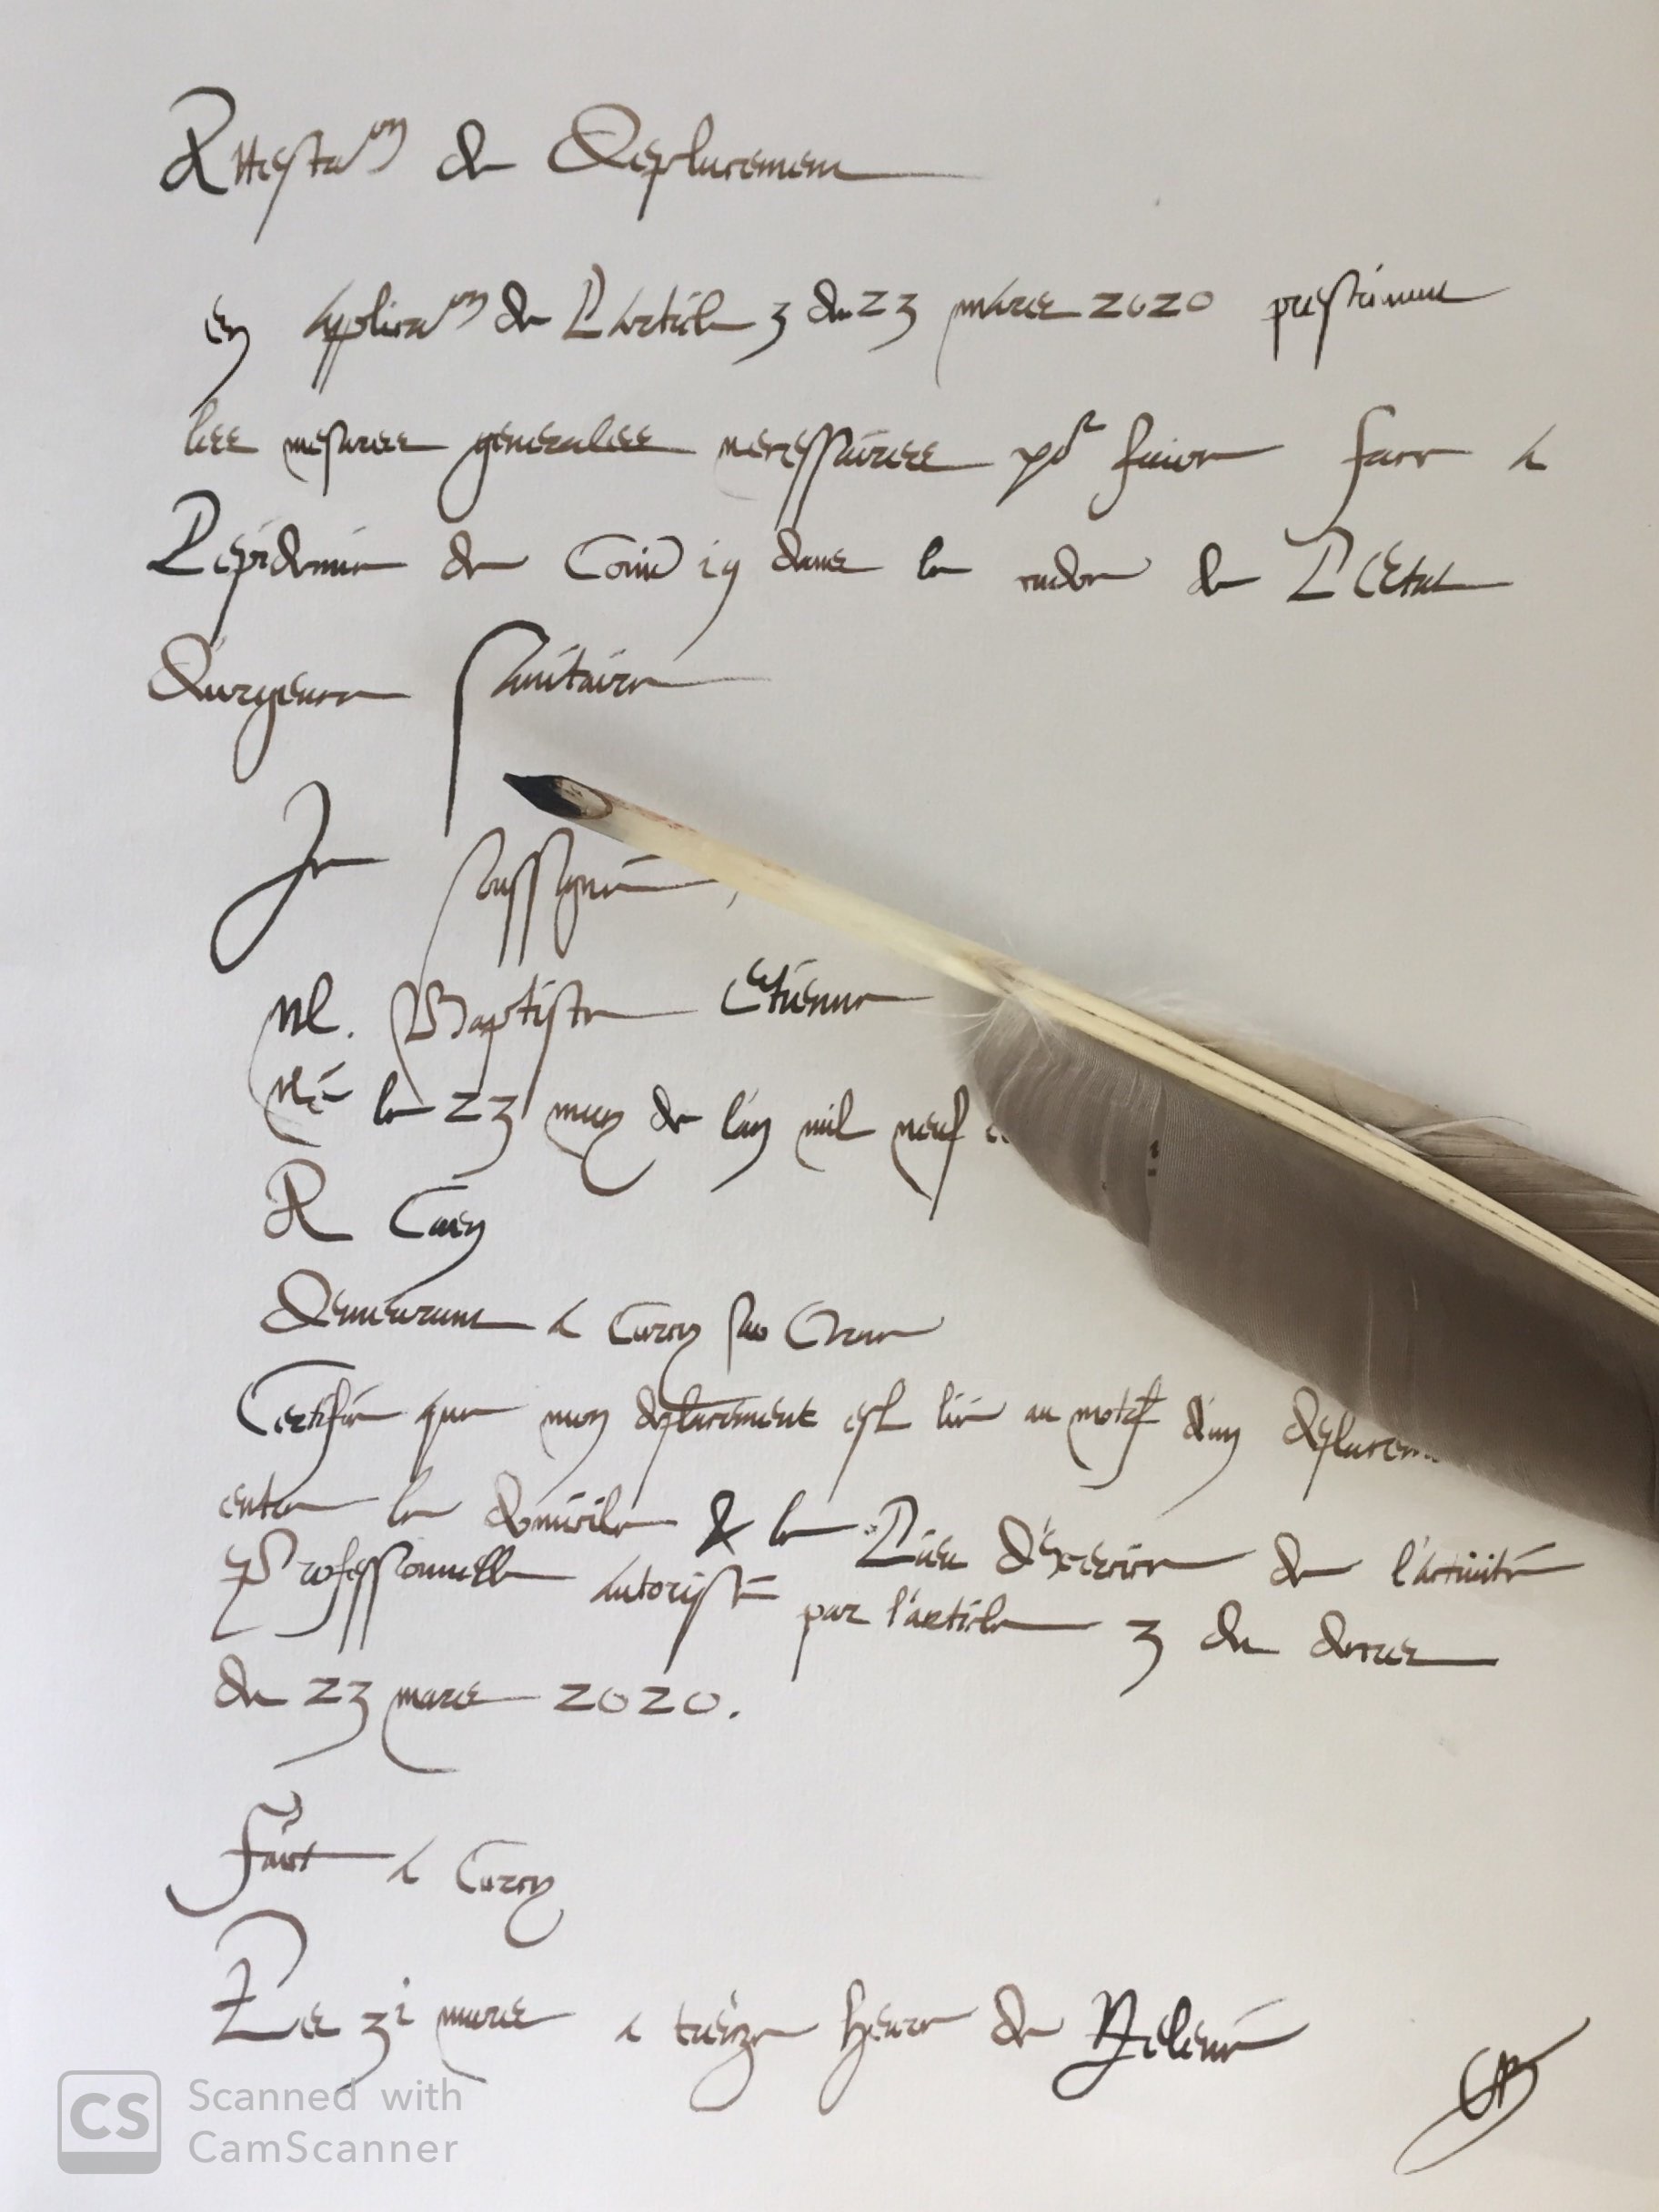 Attestaon de Deplacement
en applicaon de Larticle 3 du 23 mars 2020 prescrivant
les mesures generales necessaires por faire face a
Lepidemie de Covid 19 dans le cadre de L'Etat
Durgence Sanitaire
Je soussigné,
M. Baptiste Etienne
Né le 23 may de l'an mil neuf
A Caen
Demeurant a Curcy sur Orne
Certifie que mon deplacement est lié au motif d'un deplacem
entre le domicile & le Lieu d'exercice de l'activité
Professionnelle autorisé par l'article 3 du decret
du 23 mars 2020.
Faict a Curcy
Le 31 mars a treize heure de
CS Scanned with
CamScanner